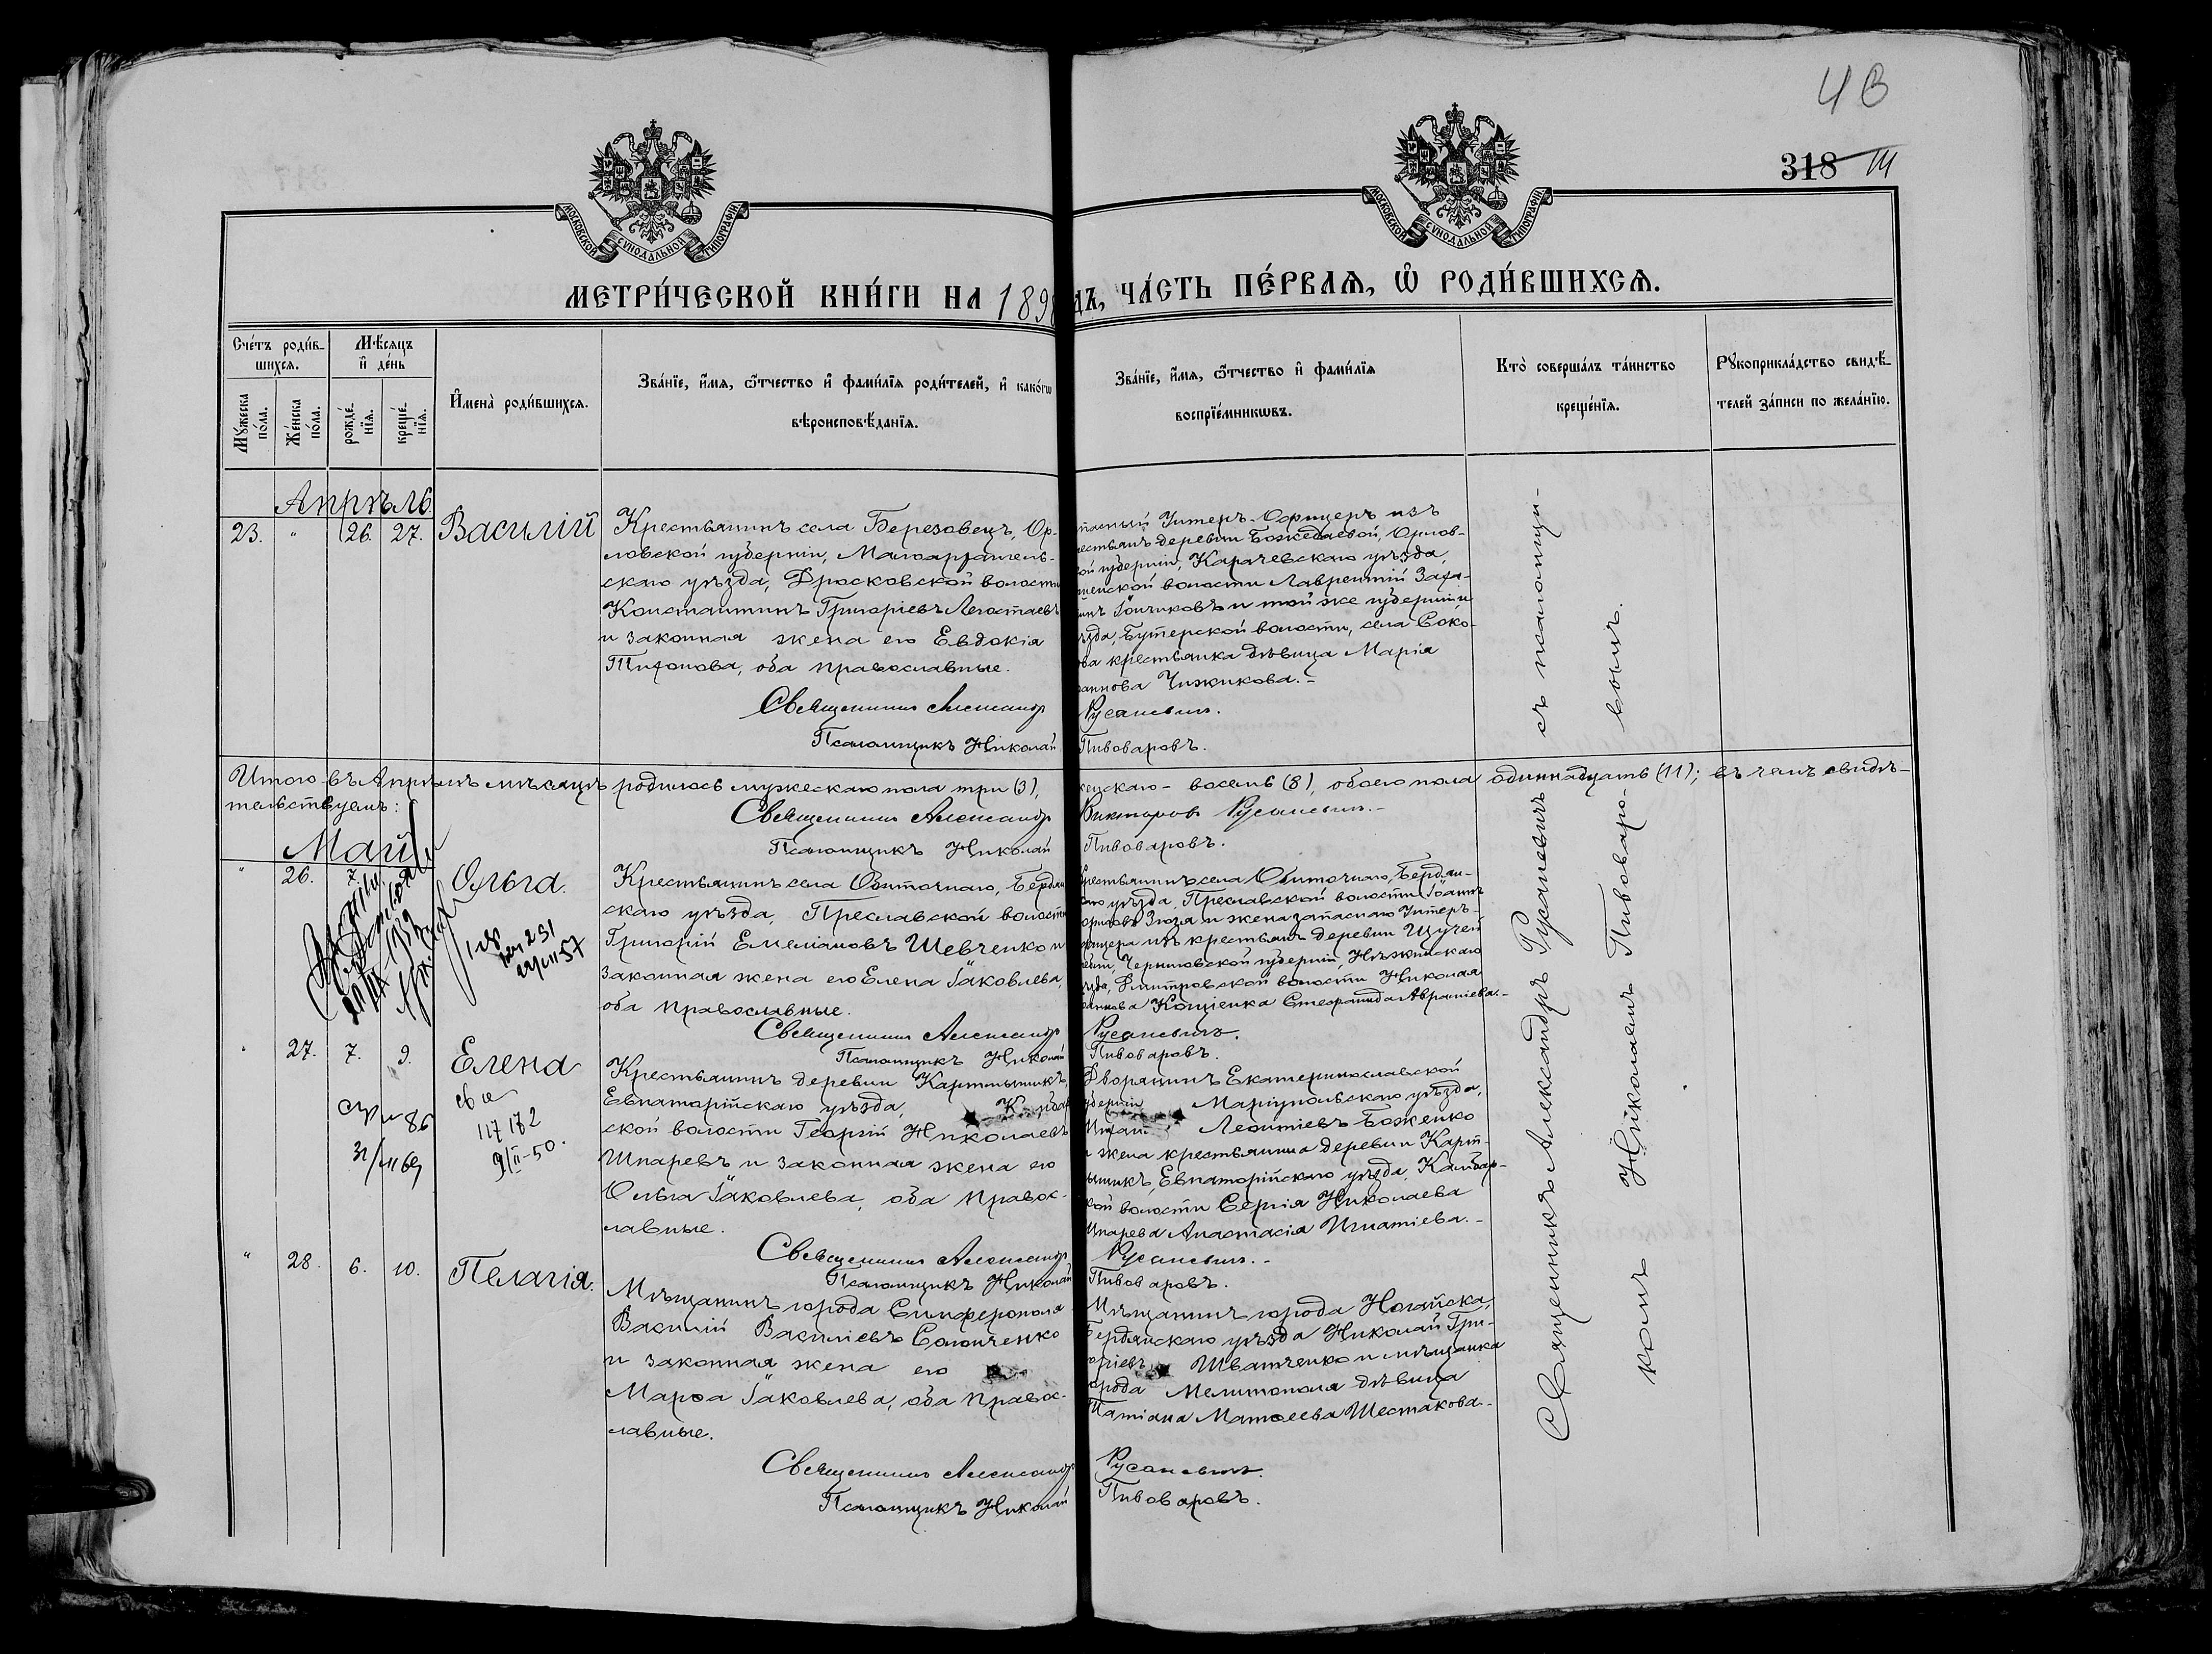 4 8
318 111
МОСКОВСКОЙ СѴНОДАЛЬНОЙ ТИПОГРАФІИ
МОСКОВСКОЙ СѴНОДАЛЬНОЙ ТИПОГРАФІИ
МЕТРИ́ЧЕСКОЙ КНИ́ГИ НА 189
ДЪ, ЧА́СТЬ ПЕ́РВАѦ, Ѡ҆ РОДИ́ВШИХСѦ.
Сче́тъ роди́в-
шихсѧ.
Мѣ́сяцъ
и҆ де́нь
Мꙋ́жеска
по́ла.
Же́нска
по́ла.
рожде́-
нїѧ.
креще́-
нїѧ.
И҆мена̀ роди́вшихсѧ.
Зва́нїе, и҆́мѧ, ѻ҆́тчество и҆ фами́лїѧ роди́телей, и҆ како́гѡ
вѣроисповѣ́данїѧ.
Зва́нїе, и҆́мѧ, ѻ҆́тчество и҆ фами́лїѧ
воспрїе́мникѡвъ.
Кто̀ соверша́лъ та́инство
креще́нїѧ.
Рꙋкоприкла́дство свидѣ́-
телей за́писи по жела́нїю.
Апрѣль
23. " 26. 27. Василій
Крестьянинъ села Березовецъ, Ор-
ловской губерніи, Малоархангель-
скаго уѣзда, Дросковской волости
Константинъ Григоріевъ Легостаевъ
и законная жена его Евдокія
Тифонова, оба православные.
Священникъ Александр
Псаломщикъ Николай
пасный Унтеръ-Офицеръ изъ
естьянъ деревни Божедаевой, Орлов-
ой губерніи, Карачевскаго уѣзда,
волости Лаврентій Заха-
инъ и той же губерніи и
ѣзда, Бутерской волости, села Соко-
ова крестьянка дѣвица Марія
аннова Чижикова.-
Русаневичъ.
Пивоваровъ.
Итого въ Апрѣлѣ мѣсяцѣ родилось мужескаго пола три (3),
женскаго - восемь (8), обоего пола одиннадцать (11); въ чемъ свидѣ-
тельствуемъ:
Священникъ Александр
Викторовъ Русаневичъ.-
Псаломщикъ Николай
Пивоваровъ.
Май
" 26. 7. Ольга.
231
57
Крестьянинъ села Обиточнаго, Бердян
скаго уѣзда, Преславской волости
Григорій Емеліановъ Шевченко и
законная жена его Елена Іаковлева,
оба православные.
Священникъ Александр
Псаломщикъ Николай
рестьянинъ села Обиточнаго, Бердян-
каго уѣзда, Преславской волости Іоаннъ
Зюза и жена запаснаго Унтеръ-
фицера изъ крестьянъ деревни Щучей
Черниговской губерніи, Нѣжинскаго
ѣзда, Дмитровской волости Николая
Стефанида Авраміева.-
Русаневичъ.
Пивоваровъ.
" 27. 7. 9. Елена
86
31/III 69
св-в
117172
9/II-50.
Крестьянинъ деревни Картмышикъ,
Евпаторійскаго уѣзда, К
ской волости Георгій Николаевъ
Шпаревъ и законная жена его
Ольга Іаковлева, оба правос-
лавные.
Священникъ Александр
Псаломщикъ Николай
Дворянинъ Екатеринославской
уберніи Маріупольскаго уѣзда,
Леонтіевъ Боженко
и жена крестьянина деревни Карт-
мышикъ, Евпаторійскаго уѣзда, Камбар-
кой волости Сергія Николаева
Шпарева Анастасія Игнатіева.-
Русаневичъ.-
Пивоваровъ.
" 28. 6. 10. Пелагія.
Мѣщанинъ города Симферополя
Василій Василіевъ Солонченко
и законная жена его
Марѳа Іаковлева, оба правос-
лавные.
Священникъ Александр
Псаломщикъ Николай
Мѣщанинъ города Ногайска,
Бердянскаго уѣзда Николай Гри-
оріевъ Шватченко и мѣщанка
орода Мелитополя дѣвица
Татіана Матѳеева Шестакова.-
Русаневичъ.
Пивоваровъ.
Священникъ Александръ Русаневичъ съ псаломщи-
комъ Николаемъ Пивоваро-
вымъ.